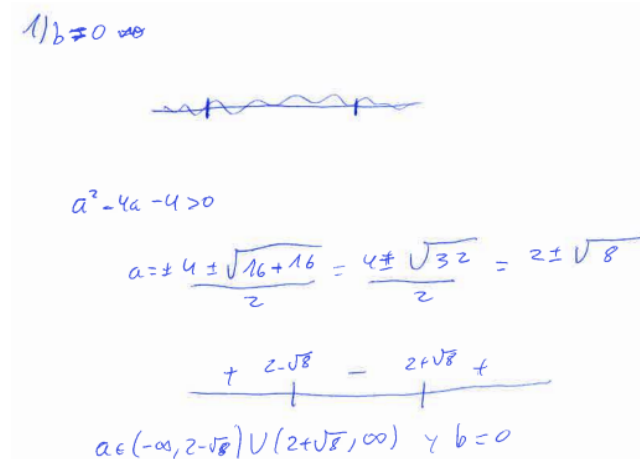 1) b = 0
a² - 4a - 4 > 0
a = ± 4 ± √16 + 16 / 2 = 4 ± √32 / 2 = 2 ± √8
+ 2-√8 - 2+√8 +
a ∈ (-∞, 2-√8) ∪ (2+√8, ∞) y b = 0